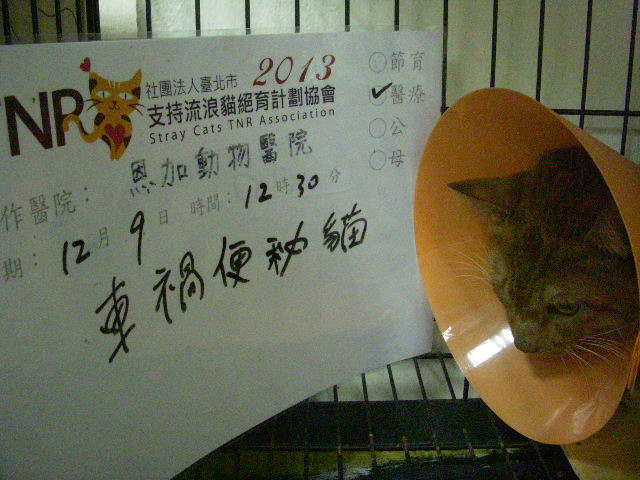 TNR
社團法人臺北市 2013
支持流浪貓絕育計劃協會
Stray Cats TNR Association
節育
醫療
公
母
作醫院: 恩加動物醫院
期: 12月9日 時間: 12時30分
車禍便秘貓